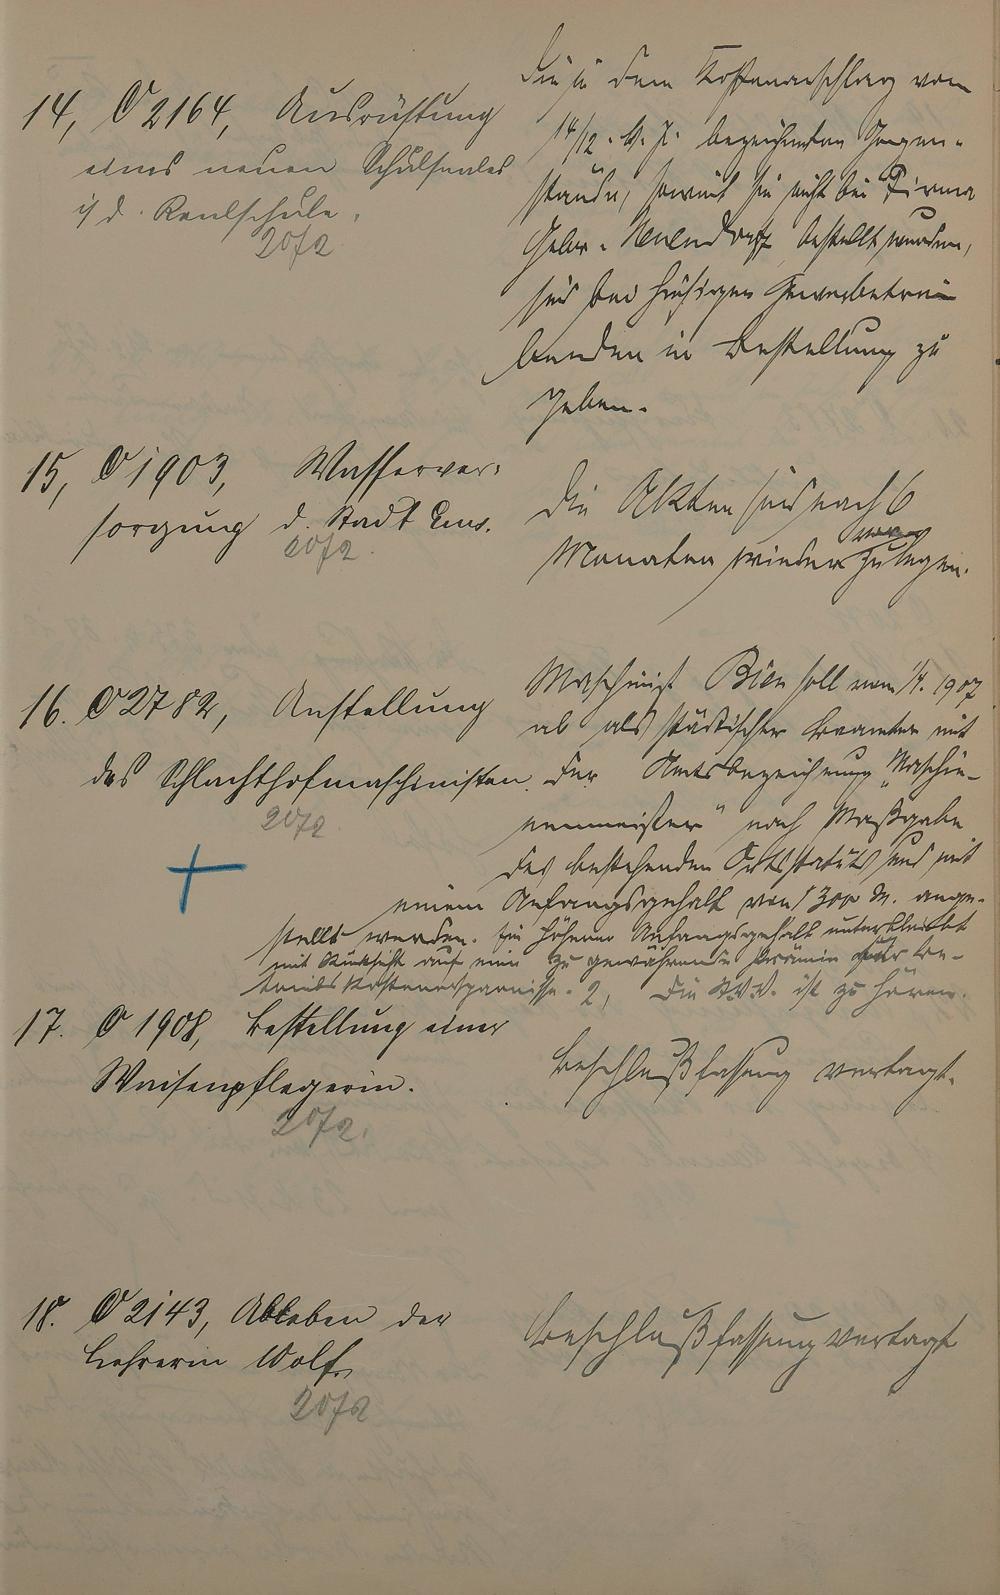 14, O 2164, Ausrüstung
eines neuen Schulsaales
i/ d. Realschule.
20/2
die in dem Kostenanschlag vom
14/12. v. J. bezeichneten Gegen-
stände, soweit sie nicht bei Firma
Gebr. Neuendorff bestellt wurden,
sind bei hiesigen Gewerbetrei
benden in Bestellung zu
geben.
15, O 1903, Wasserver-
sorgung d. Stadt Ems.
20/2.
Die Akten sind nach 6
Monaten wieder vor
zulegen.
16. O 2782, Anstellung
des Schlachthofmaschinisten.
20/2
Maschinist Bien soll vom 1/4. 1907
ab als städtischer Beamter mit
der Amtsbezeichnung "Maschi-
nenmeister" nach Maßgabe
des bestehenden Ortsstatuts und mit
einem Anfangsgehalt von 1300 M. ange-
stellt werden. Ein höherer Anfangsgehalt unterbleibt
mit Rücksicht auf eine zu gewährende Prämie für Be-
triebskostenersparnisse. 2, Die St.V.V. ist zu hören.
17. O 1908, Bestellung einer
Waisenpflegerin.
20/2.
Beschlußfassung vertagt.
18. O 2143, Ableben der
Lehrerin Wolf.
20/2
Beschlußfassung vertagt